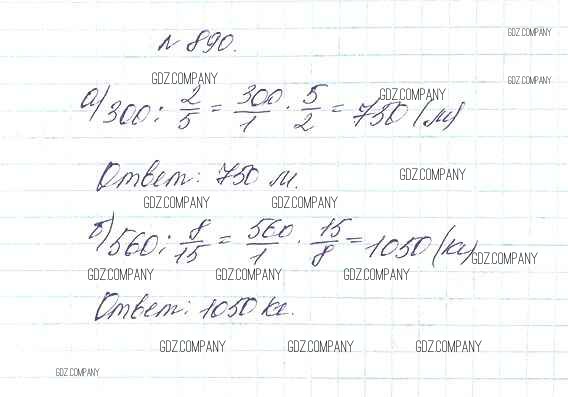 № 890.
GDZ.COMPANY
GDZ.COMPANY
GDZ.COMPANY
GDZ.COMPANY
а) 300 : 2/5 = 300/1 · 5/2 = 750 (м)
Ответ: 750 м.
GDZ.COMPANY
GDZ.COMPANY GDZ.COMPANY
б) 560 : 8/15 = 560/1 · 15/8 = 1050 (кг)
GDZ.COMPANY
GDZ.COMPANY GDZ.COMPANY GDZ.COMPANY
Ответ: 1050 кг.
GDZ.COMPANY GDZ.COMPANY GDZ.COMPANY
GDZ.COMPANY